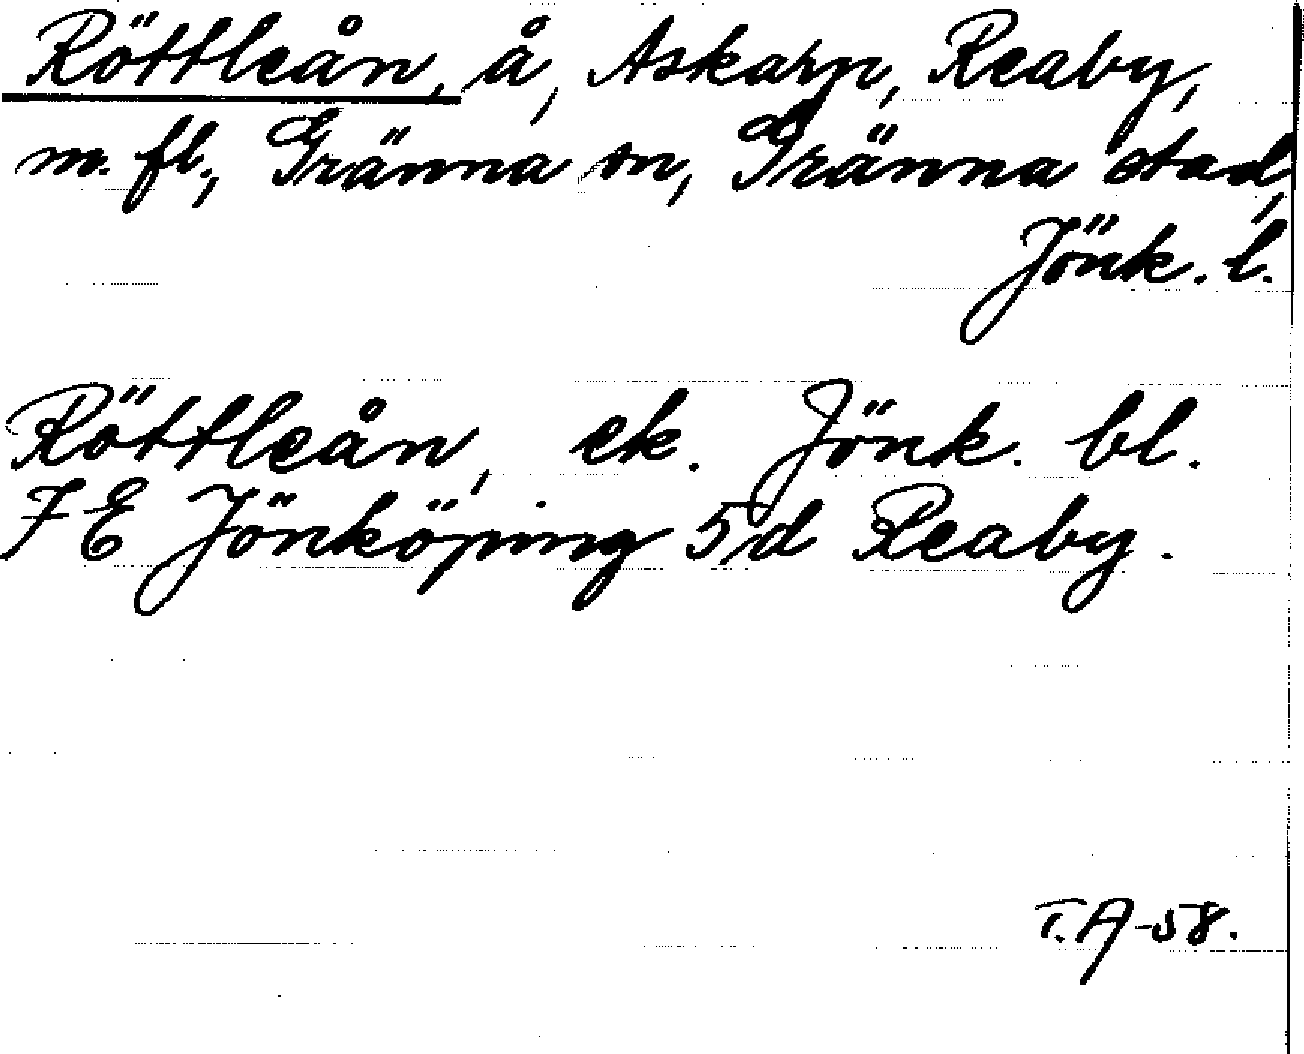 Röttleån, å, Askarp, Reaby,
m. fl., Gränna sn, Gränna stad,
Jönk. l.
Röttleån, ek. Jönk. bl.
7E Jönköping 5d Reaby.
T.A-58.